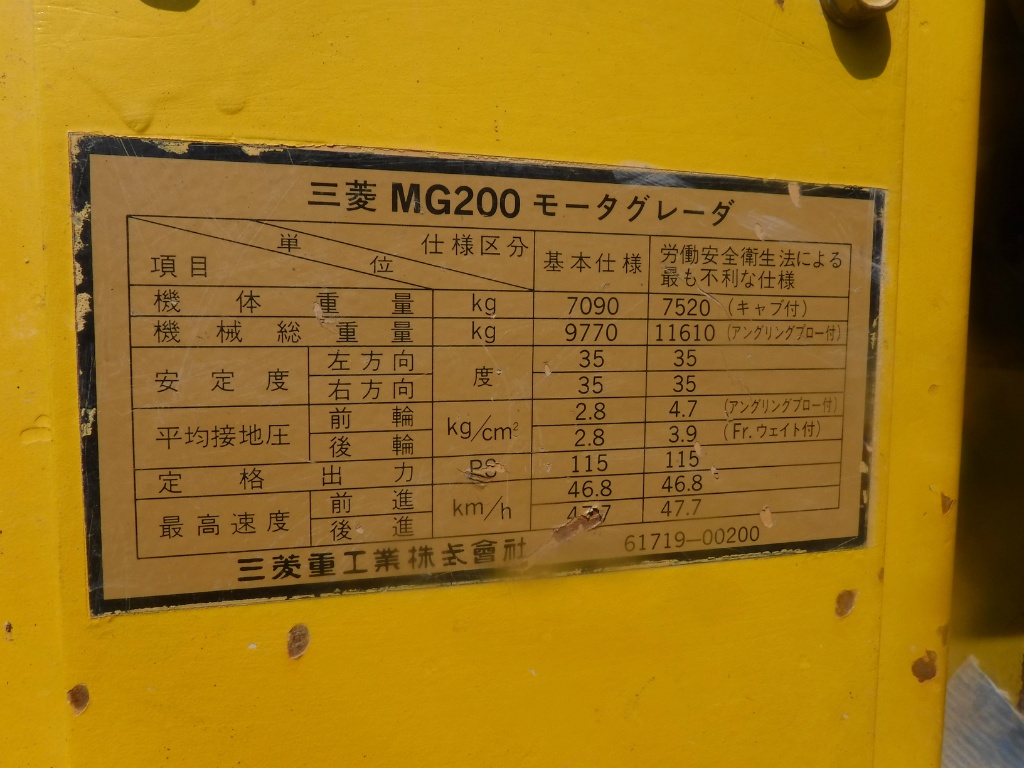 三菱 MG200 モータグレーダ
項目 単位 仕様区分 基本仕様 労働安全衛生法による
最も不利な仕様
機体重量 kg 7090 7520 (キャブ付)
機械総重量 kg 9770 11610 (アングリングプロー付)
安定度 左方向 度 35 35
右方向 35 35
平均接地圧 前輪 kg/cm² 2.8 4.7 (アングリングプロー付)
後輪 2.8 3.9 (Fr.ウェイト付)
定格出力 PS 115 115
最高速度 前進 km/h 46.8 46.8
後進 47.7
三菱重工業株式會社 61719-00200